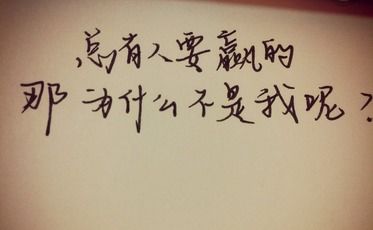 总有人要赢的
那为什么不是我呢?